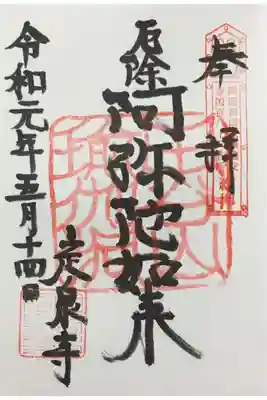 奉拝
厄除
阿弥陀如来
定泉寺
令和元年五月十四日